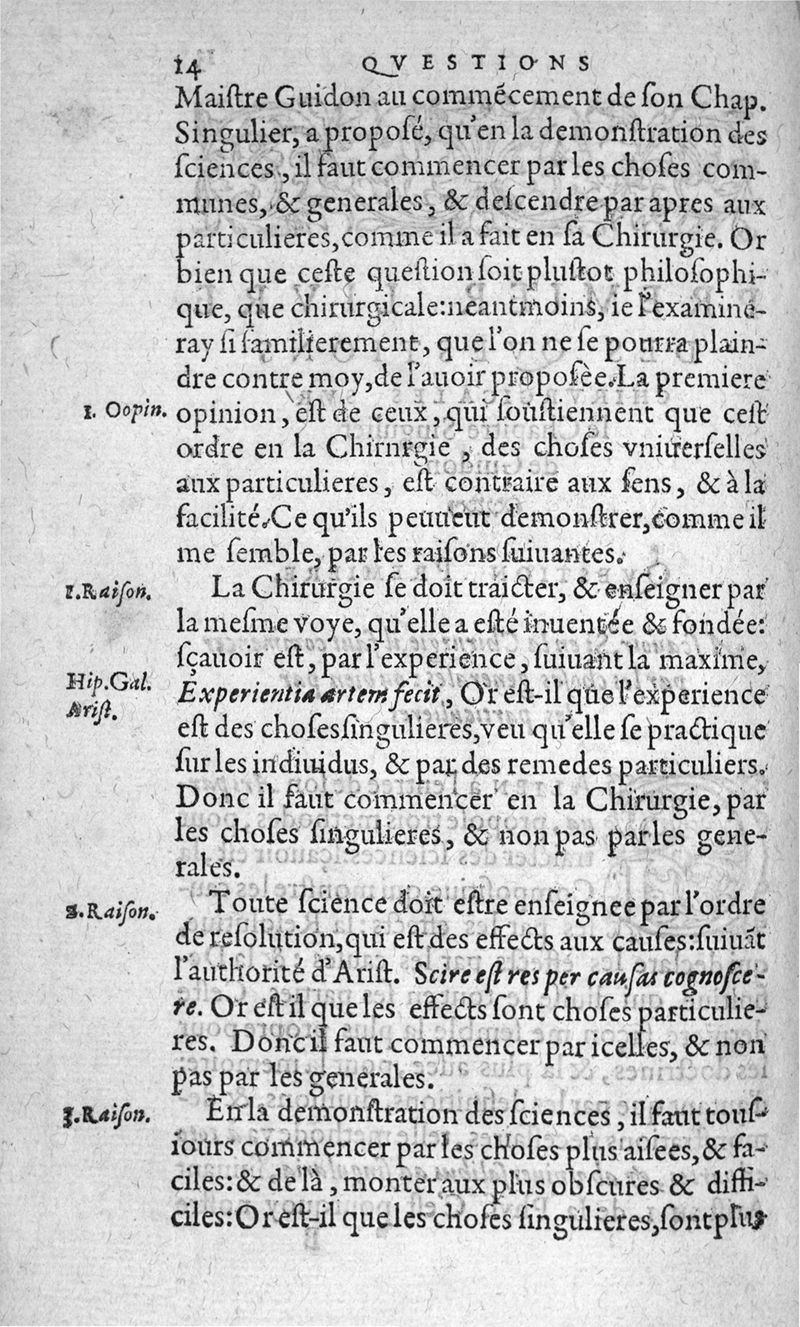 14 QVESTIONS
Maiſtre Guidon au commécement de ſon Chap.
Singulier, a propoſé, qu'en la demonſtration des
ſciences, il faut commencer par les choſes com-
munes, & generales, & deſcendre par apres aux
particulieres, comme il a fait en ſa Chirurgie. Or
bien que ceſte queſtion ſoit pluſtot philoſophi-
que, que chirurgicale: neantmoins, ie l'examine-
ray ſi familierement, que l'on ne ſe pourra plain-
dre contre moy, de l'auoir propoſèe. La premiere
1. Oopin.
opinion, eſt de ceux, qui ſouſtiennent que ceſt
ordre en la Chirnrgie, des choſes vniuerſelles
aux particulieres, eſt contraire aux ſens, & à la
facilité. Ce qu'ils peuuent demonſtrer, comme il
me ſemble, par les raiſons ſuiuantes.
1. Raiſon.
La Chirurgie ſe doit traicter, & enſeigner par
la meſme voye, qu'elle a eſté inuentée & fondée:
ſçauoir eſt, par l'experience, ſuiuant la maxime,
Hip. Gal.
Ariſt.
Experientia artem fecit, Or eſt-il que l'experience
eſt des choſes ſingulieres, veu qu'elle ſe practique
ſur les indiuidus, & par des remedes particuliers.
Donc il faut commencer en la Chirurgie, par
les choſes ſingulieres, & non pas par les gene-
rales.
2. Raiſon.
Toute ſcience doit eſtre enſeignee par l'ordre
de reſolution, qui eſt des effects aux cauſes: ſuiuãt
l'authorité d'Ariſt. Scire eſt res per cauſas cognoſce-
re. Or eſt il que les effects ſont choſes particulie-
res. Donc il faut commencer par icelles, & non
pas par les generales.
3. Raiſon.
En la demonſtration des ſciences, il faut touſ-
iours commencer par les choſes plus aiſees, & fa-
ciles: & de là, monter aux plus obſcures & diffi-
ciles: Or eſt-il que les choſes ſingulieres, ſont plus